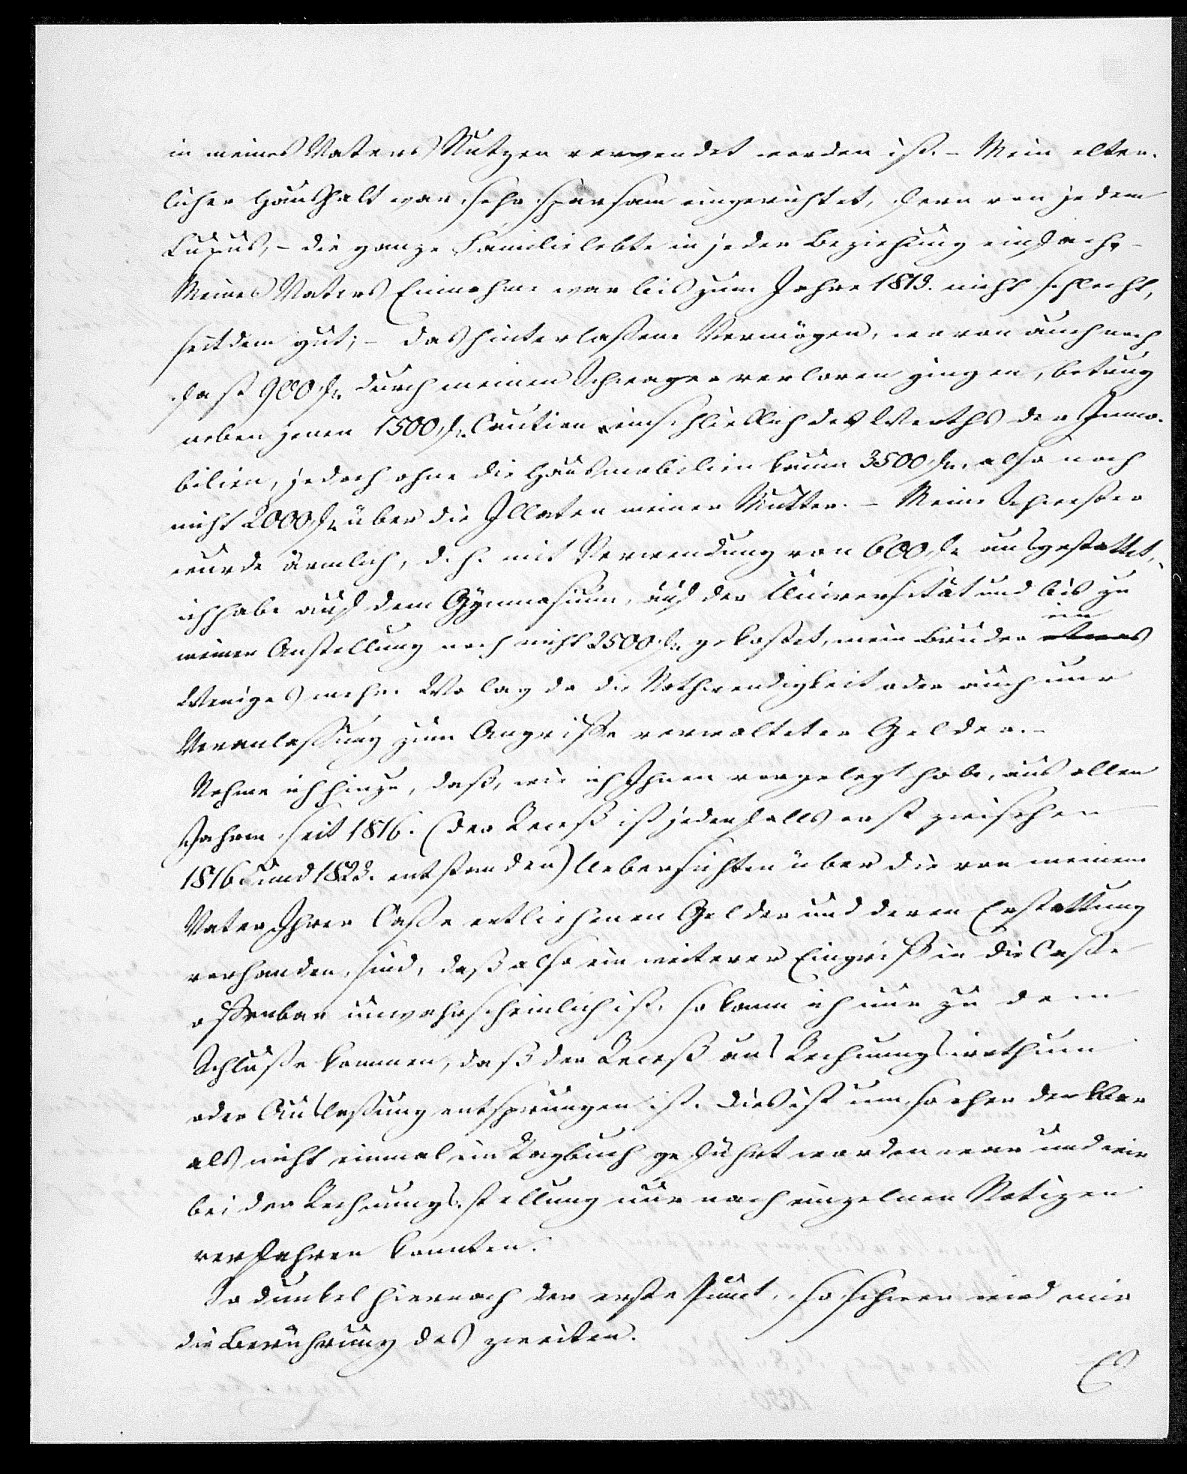 in meines Vaters Nutzen verwendet worden ist. - Mein elter-
licher Haushalt war sehr sparsam eingerichtet, fern von jedem
Luxus, - die ganze Familie lebte in jeder Beziehung einfach, -
Meines Vaters Einnahme war bis zum Jahre 1813. nicht schlecht,
seitdem gut; - das hinterlaßene Vermögen, wovon auch noch
fast 900 fl. durch meinen Schwager verloren gingen, betrug
neben jenen 1500 fl. Caution einschließlich des Werths der Immo-
bilien, jedoch ohne die Hausmobilien kaum 3500 fl., also noch
nicht 2000 fl. über die Illaten meiner Mutter. - Meine Schwester
wurde ärmlich, d. h. mit Verwendung von 600 fl. ausgestattet,
ich habe auf dem Gymnasium, auf der Universität und bis zu
meiner Anstellung noch nicht 2500 fl. gekostet, mein Bruder etwas ein
Weniges mehr. Wo lag da die Nothwendigkeit oder auch nur
Veranlassung zum Angriffe verwalteter Gelder. -
Nehme ich hinzu, daß, wie ich Ihnen vorgelegt habe, aus allen
Jahren seit 1816. (der Receß ist jedenfalls erst zwischen
1816 und 1823. entstanden) Uebersichten über die von meinem
Vater Ihrer Casse entliehenen Gelder und deren Erstattung
vorhanden sind, daß also ein weiterer Eingriff in die Casse
offenbar unwahrscheinlich ist, so kann ich nur zu dem
Schluße kommen, daß der Receß aus Rechnungsirrthum
oder Auslassung entsprungen ist. Dies ist um so eher denkbar
als nicht einmal ein Tagbuch geführt worden war und wir
bei der Rechnungsstellung nur nach einzelnen Notizen
verfahren konnten.
So dunkel hiernach der erste Punct, so schwer wird mir
die Berührung des zweiten.
Es